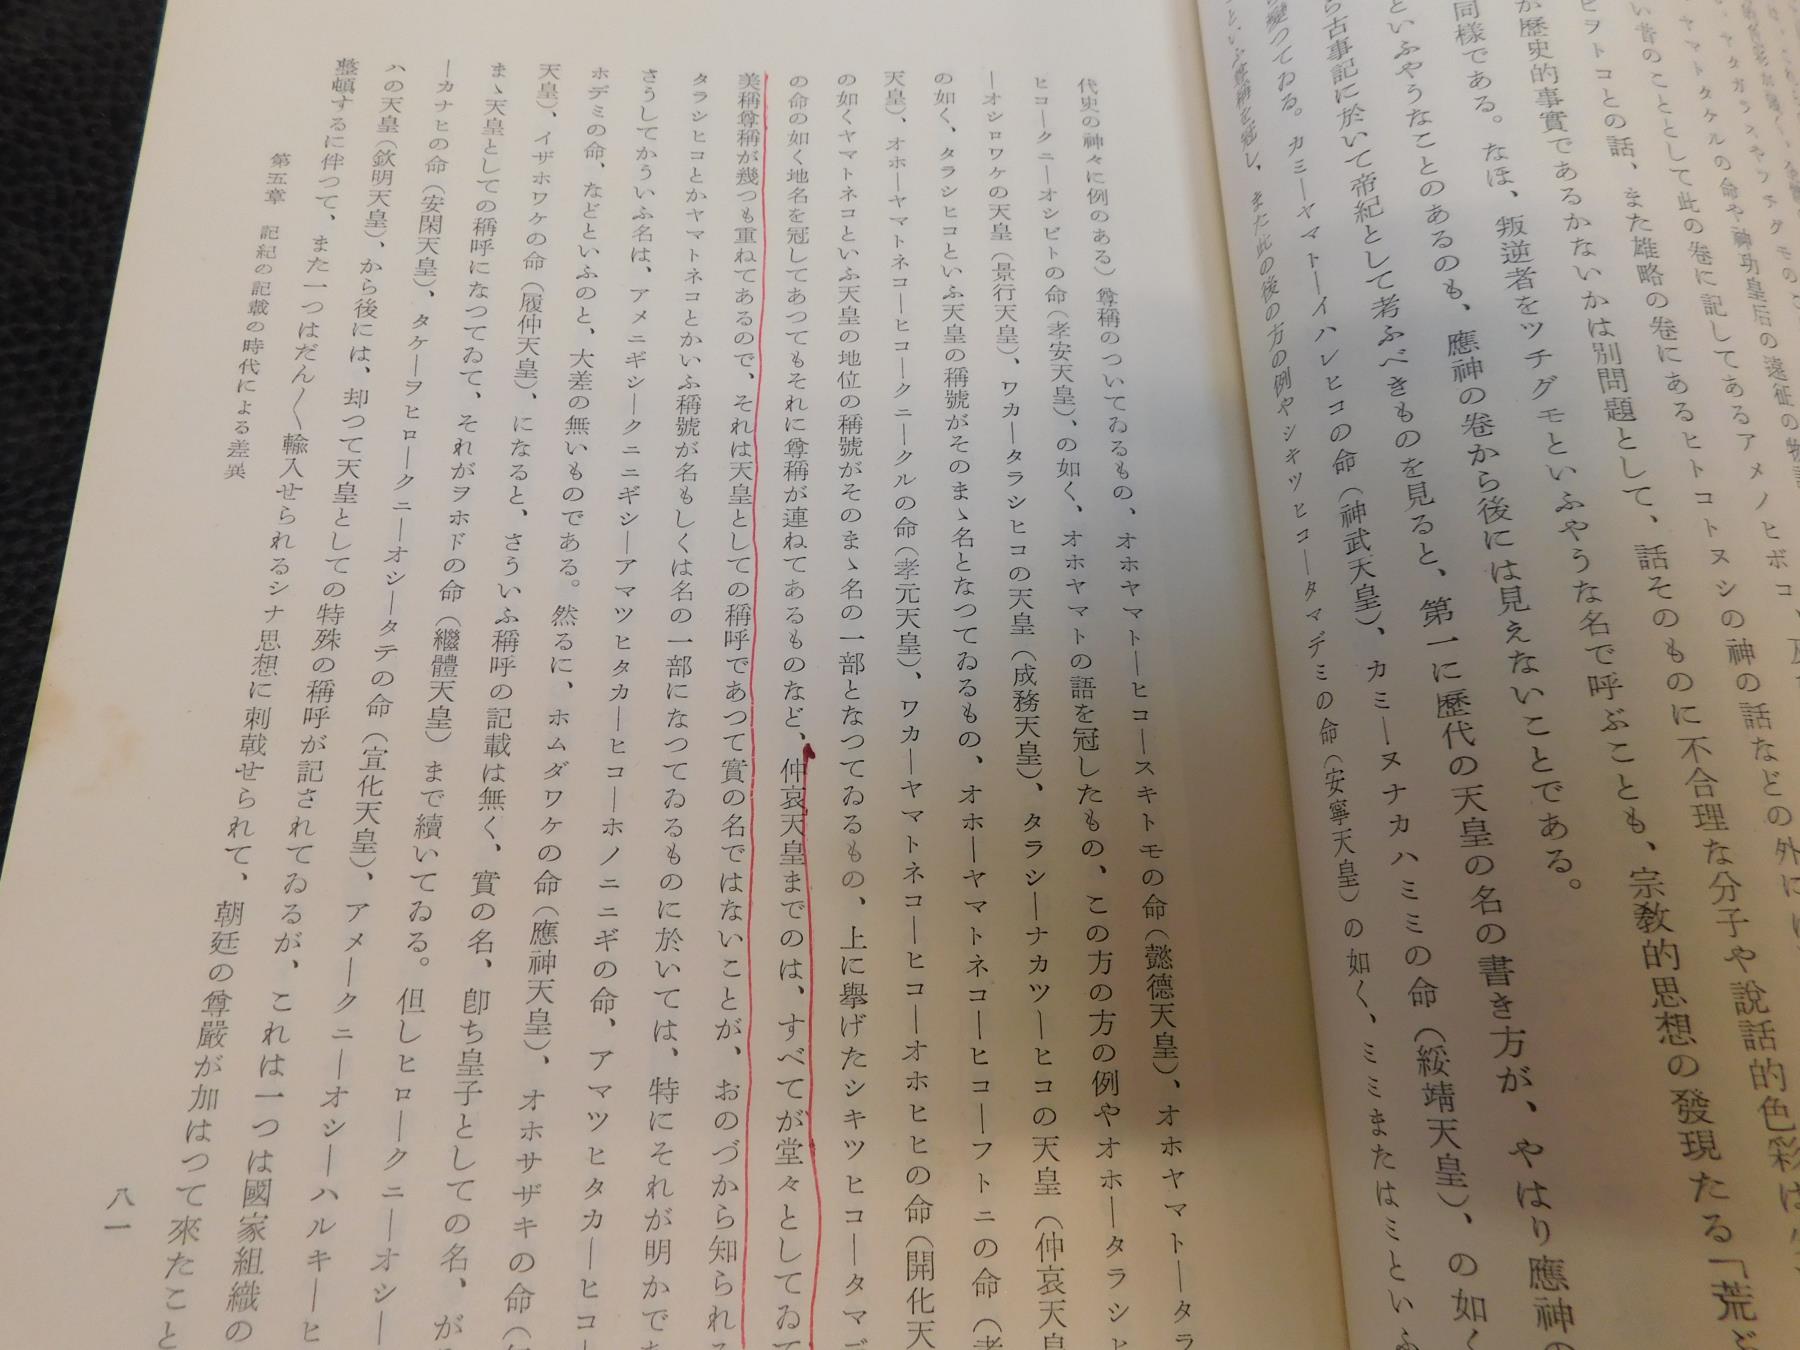 い昔のこととして此の卷に記してあるアメノヒボコ
ヤマトタケルの命や神功皇后の遠征の物語
ヒトコトヌシの神の話などの外に
ヲトコとの話、また雄略の卷にあるヒトコトヌシの神の話などの外に
歴史的事實であるかないかは別問題として、話そのものに不合理な分子や説話的色彩は
同樣である。なほ、叛逆者をツチグモといふやうな名で呼ぶことも、宗教的思想の發現たる「荒ぶ
といふやうなことのあるのも、應神の卷から後には見えないことである。
ら古事記に於いて帝紀として考ふべきものを見ると、第一に歷代の天皇の名の書き方が、やはり應神の
變つてゐる。カミ—ヤマト—イハレヒコの命(神武天皇)、カミ—ヌナカハミミの命(綏靖天皇)、の如く
といふ尊稱を冠し、また此の後の方の例やシキツヒコ—タマデミの命(安寧天皇)の如く、ミミまたはミといふ
代史の神々に例のある)尊稱のついてゐるもの、オホヤマト—ヒコ—スキトモの命(懿德天皇)、オホヤマト—タラ
ヒコ—クニ—オシビトの命(孝安天皇)、の如く、オホヤマトの語を冠したもの、この方の方の例やオホ—タラシヒ
—オシロワケの天皇(景行天皇)、ワカ—タラシヒコの天皇(成務天皇)、タラシ—ナカツ—ヒコの天皇(仲哀天皇
の如く、タラシヒコといふ天皇の稱號がそのまゝ名となつてゐるもの、オホ—ヤマトネコ—ヒコ—フトニの命(孝
天皇)、オホ—ヤマトネコ—ヒコ—クニ—クルの命(孝元天皇)、ワカ—ヤマトネコ—ヒコ—オホヒヒの命(開化天
の如くヤマトネコといふ天皇の地位の稱號がそのまゝ名の一部となつてゐるもの、上に擧げたシキツヒコ—タマデ
の命の如く地名を冠してあつてもそれに尊稱が連ねてあるものなど、仲哀天皇までのは、すべてが堂々としてゐて
美稱尊稱が幾つも重ねてあるので、それは天皇としての稱呼であつて實の名ではないことが、おのづから知られる
タラシヒコとかヤマトネコとかいふ稱號が名もしくは名の一部になつてゐるものに於いては、特にそれが明かであ
さうしてかういふ名は、アメニギシ—クニニギシ—アマツヒタカ—ヒコ—ホノニニギの命、アマツヒタカ—ヒコ—
ホデミの命、などといふのと、大差の無いものである。然るに、ホムダワケの命(應神天皇)、オホサザキの命(
天皇)、イザホワケの命(履仲天皇)、になると、さういふ稱呼の記載は無く、實の名、卽ち皇子としての名、が
まゝ天皇としての稱呼になつてゐて、それがヲホドの命(繼體天皇)まで續いてゐる。但しヒロ—クニ—オシ—
—カナヒの命(安閑天皇)、タケ—ヲヒロ—クニ—オシ—タテの命(宣化天皇)、アメ—クニ—オシ—ハルキ—ヒ
ハの天皇(欽明天皇)、から後には、却つて天皇としての特殊の稱呼が記されてゐるが、これは一つは國家組織の
整頓するに伴つて、また一つはだん〱輸入せられるシナ思想に刺戟せられて、朝廷の尊嚴が加はつて來たこと
第五章 記紀の記載の時代による差異
八一